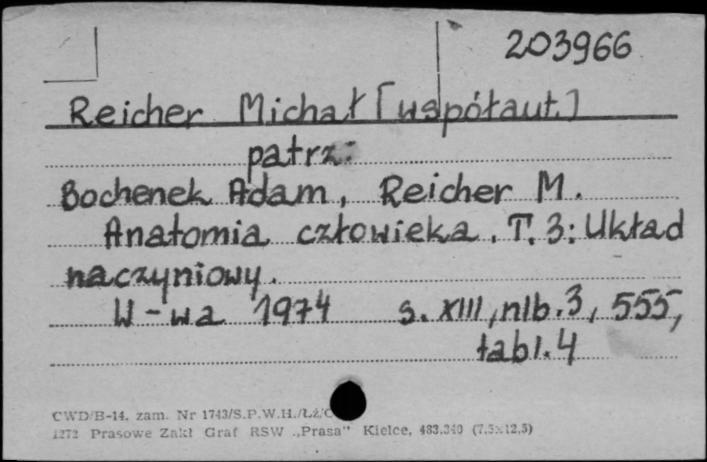 203966
Reicher Michał [współaut.]
patrz:
Bochenek Adam, Reicher M.
Anatomia człowieka. T. 3: Układ
naczyniowy.
W-wa 1974 s. XIII, nlb. 3, 555,
tabl. 4
CWD/B-14. zam. Nr 1743/S.P.W.H./Łź/
1272 Prasowe Zakł Graf RSW „Prasa" Kielce, 483.340 (7,5x12,5)